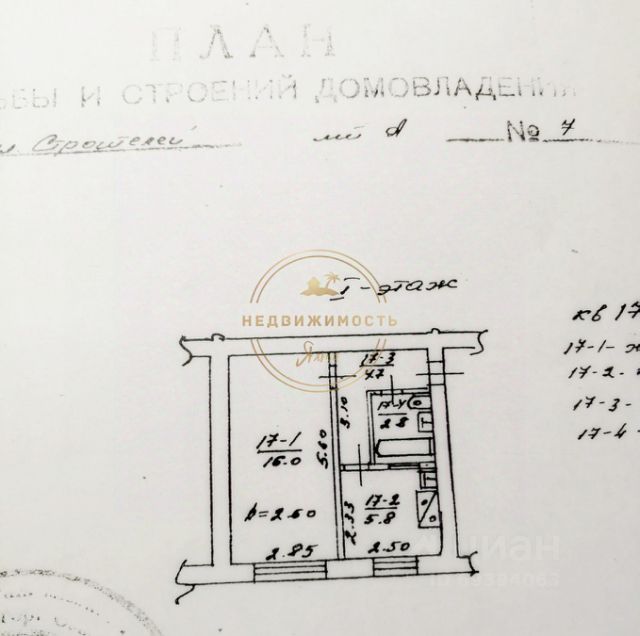 ПЛАН
ЬБЫ И СТРОЕНИЙ ДОМОВЛАДЕНИЯ
л. Строителей лит А № 7
I - этаж
НЕДВИЖИМОСТЬ
кв 17
17-1-
17-2-
17-3-
17-4-
17-3
4.7
17-4
2.8
3.10
17-1
16.0
5.60
h=2.60
2.85
17-2
5.8
2.33
2.50
ЦИАН